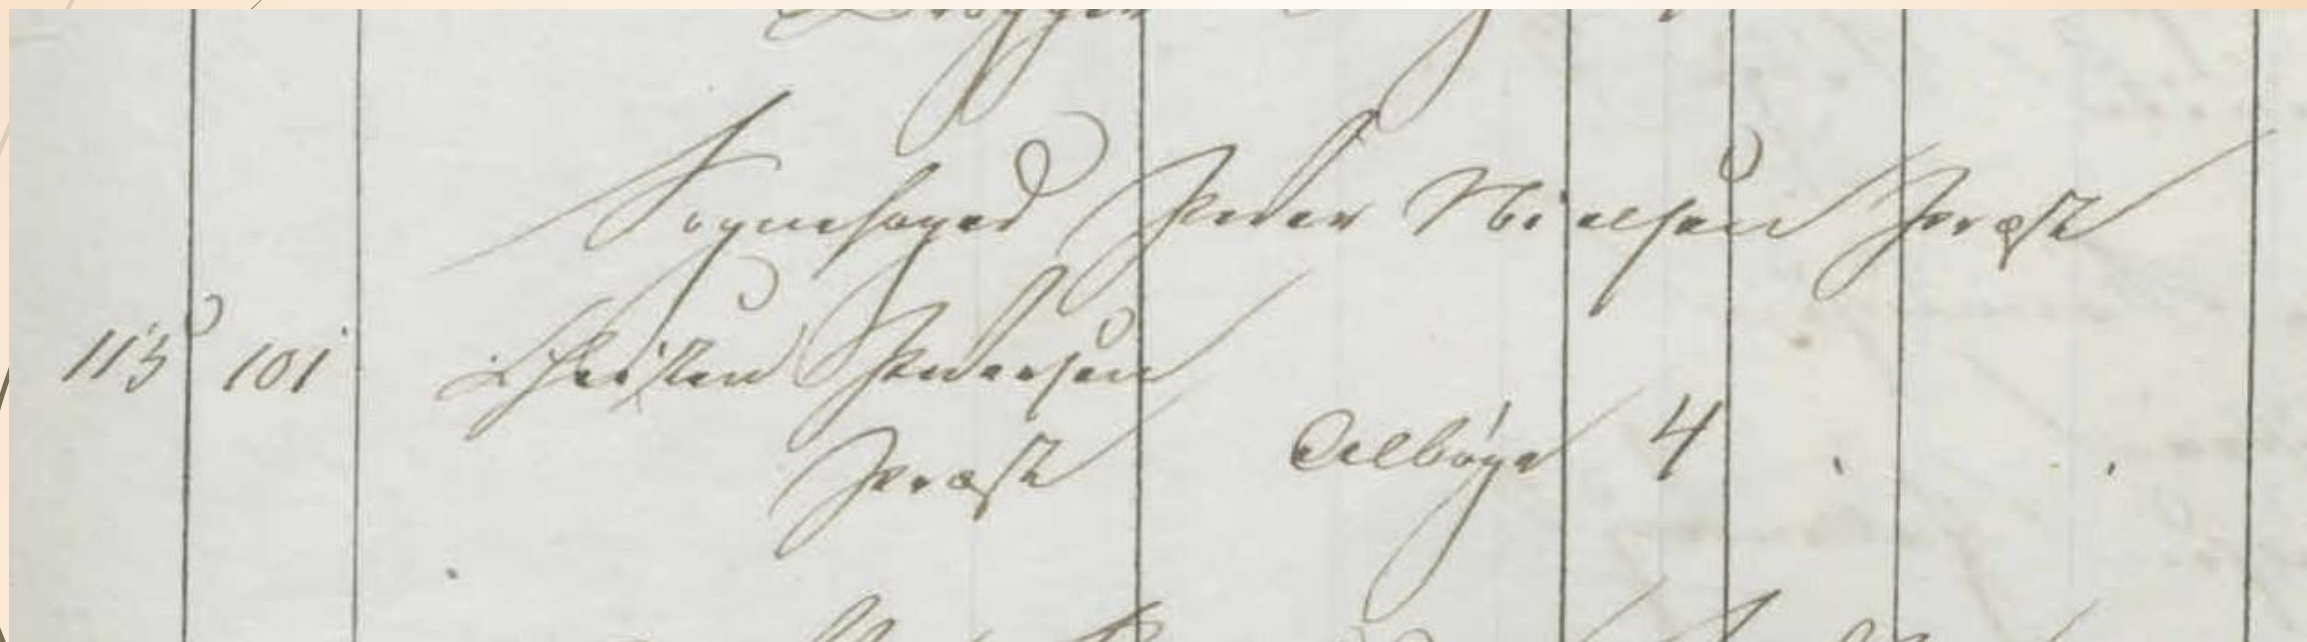 Sognefoged Peder Nielsen Præst
113 101 Christen Pedersen
Præst Aelbøge 4